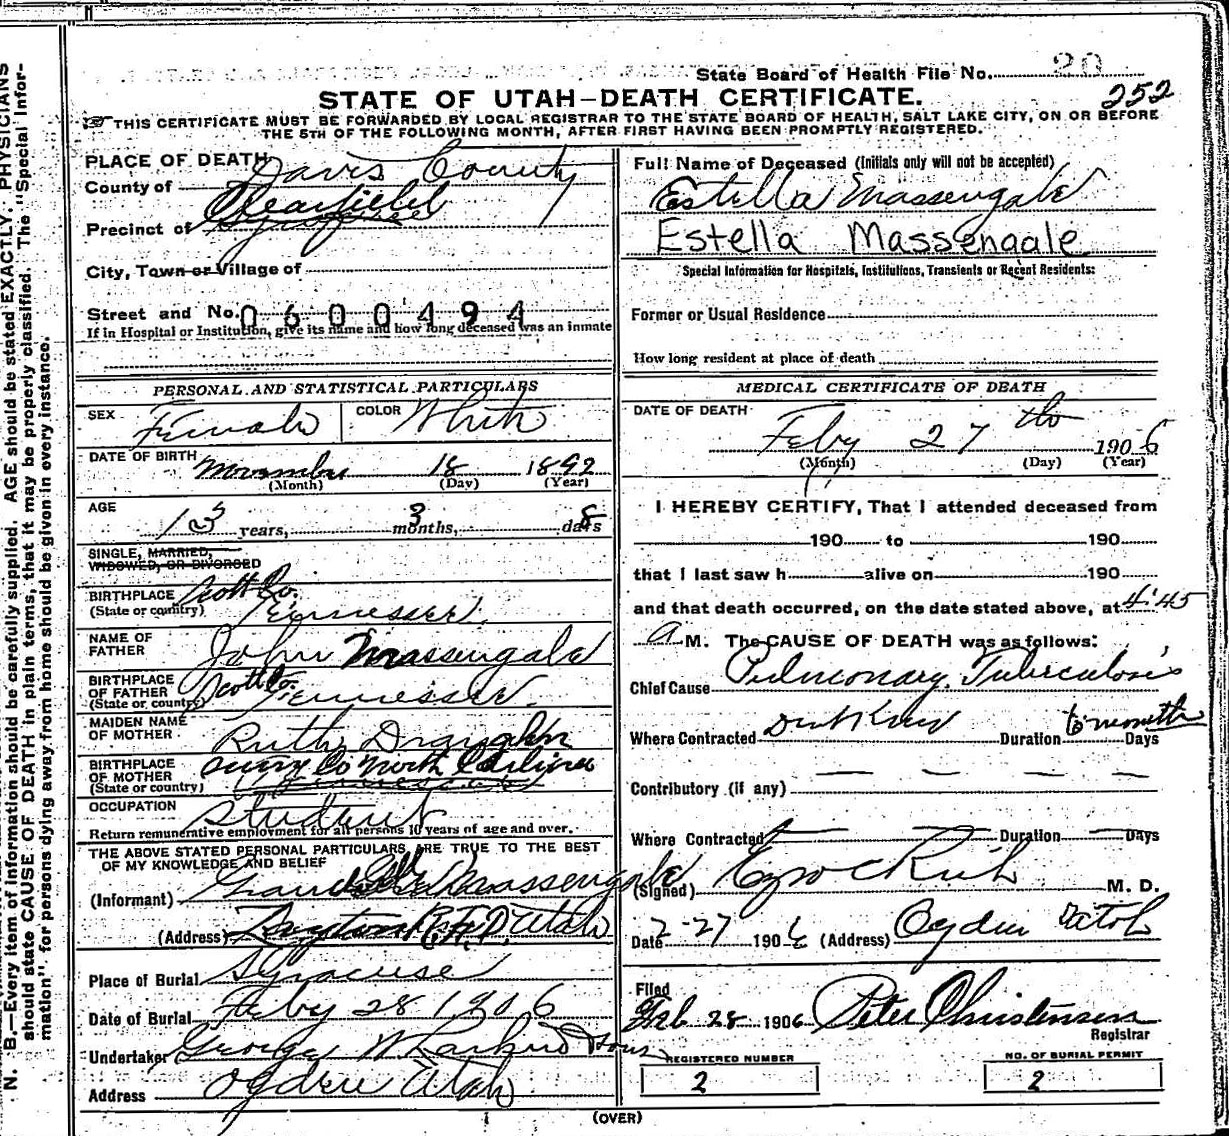 State Board of Health File No. 20
252
STATE OF UTAH—DEATH CERTIFICATE.
THIS CERTIFICATE MUST BE FORWARDED BY LOCAL REGISTRAR TO THE STATE BOARD OF HEALTH, SALT LAKE CITY, ON OR BEFORE
THE 5TH OF THE FOLLOWING MONTH, AFTER FIRST HAVING BEEN PROMPTLY REGISTERED.
N. B.—Every item of information should be carefully supplied. AGE should be stated EXACTLY. PHYSICIANS
should state CAUSE OF DEATH in plain terms, that it may be properly classified. The "Special Infor-
mation" for persons dying away from home should be given in every instance.
PLACE OF DEATH
County of Davis County
Precinct of Clearfield
City, Town or Village of
Street and No. 0600494
If in Hospital or Institution, give its name and how long deceased was an inmate
PERSONAL AND STATISTICAL PARTICULARS
SEX Female COLOR White
DATE OF BIRTH November 18 1892
(Month) (Day) (Year)
AGE
13 years, 3 months, 8 days
SINGLE, MARRIED,
WIDOWED, OR DIVORCED
BIRTHPLACE Scott Co.
(State or country) Tennessee.
NAME OF
FATHER John Massengale
BIRTHPLACE
OF FATHER Scott Co.
(State or country) Tennessee.
MAIDEN NAME
OF MOTHER Ruth
BIRTHPLACE
OF MOTHER Surry Co North Carolina
(State or country)
OCCUPATION Student
Return remunerative employment for all persons 10 years of age and over.
THE ABOVE STATED PERSONAL PARTICULARS ARE TRUE TO THE BEST
OF MY KNOWLEDGE AND BELIEF
(Informant) Massengale
(Address) Layton R.F.D. Utah
Place of Burial Syracuse
Date of Burial Feby 28 1906
Undertaker George W Larkin & Sons
Address Ogden Utah
Full Name of Deceased (Initials only will not be accepted)
Estella Massengale
Estella Massengale
Special Information for Hospitals, Institutions, Transients or Recent Residents:
Former or Usual Residence
How long resident at place of death
MEDICAL CERTIFICATE OF DEATH
DATE OF DEATH
Feby 27th 1906
(Month) (Day) (Year)
I HEREBY CERTIFY, That I attended deceased from
190 to 190
that I last saw h alive on 190
and that death occurred, on the date stated above, at 4:45
a M. The CAUSE OF DEATH was as follows:
Chief Cause Pulmonary Tuberculosis
Where Contracted Dont Know Duration 6 months Days
Contributory (if any) — — — —
Where Contracted — Duration — Days
(Signed) M. D.
Date 2-27 1906 (Address) Ogden Utah
Filed
Feb. 28 1906 Peter Christensen
Registrar
REGISTERED NUMBER
2
NO. OF BURIAL PERMIT
2
(OVER)